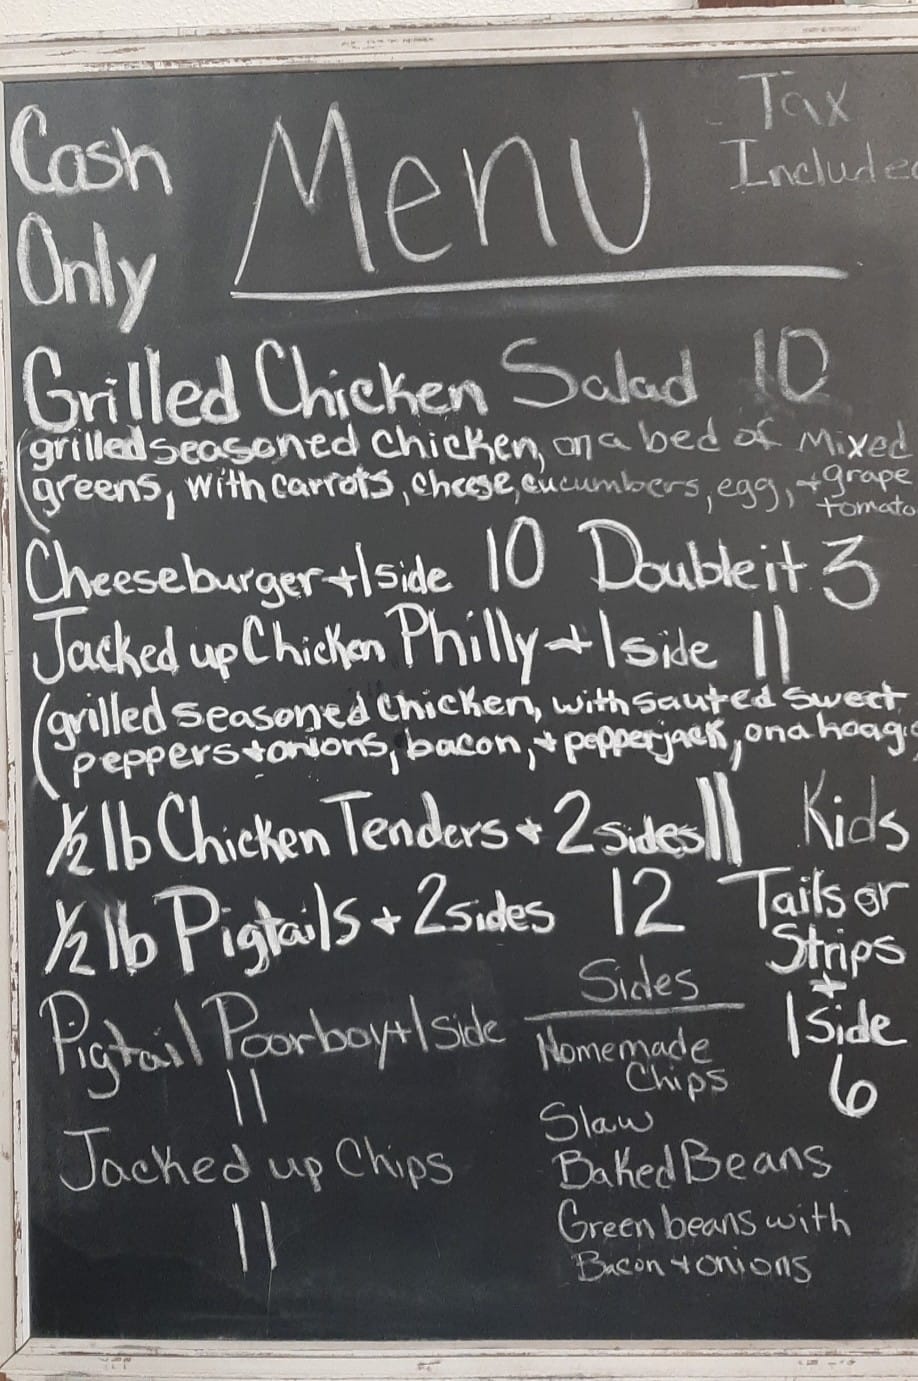 Cash
Only
Menu
Tax
Include
Grilled Chicken Salad 10
(grilled seasoned chicken, on a bed of mixed
greens, with carrots, cheese, cucumbers, egg, + grape
tomato
Cheeseburger + 1 side 10 Double it 3
Jacked up Chicken Philly + 1 side 11
(grilled seasoned chicken, with sauted sweet
peppers + onions, bacon, + pepperjack, on a hoagi
1/2 lb Chicken Tenders + 2 sides 11
1/2 lb Pigtails + 2 sides 12
Kids
Tails or
Strips
+
1 Side
6
Pigtail Poorboy + 1 Side
11
Jacked up Chips
11
Sides
Homemade
Chips
Slaw
Baked Beans
Green beans with
Bacon + onions